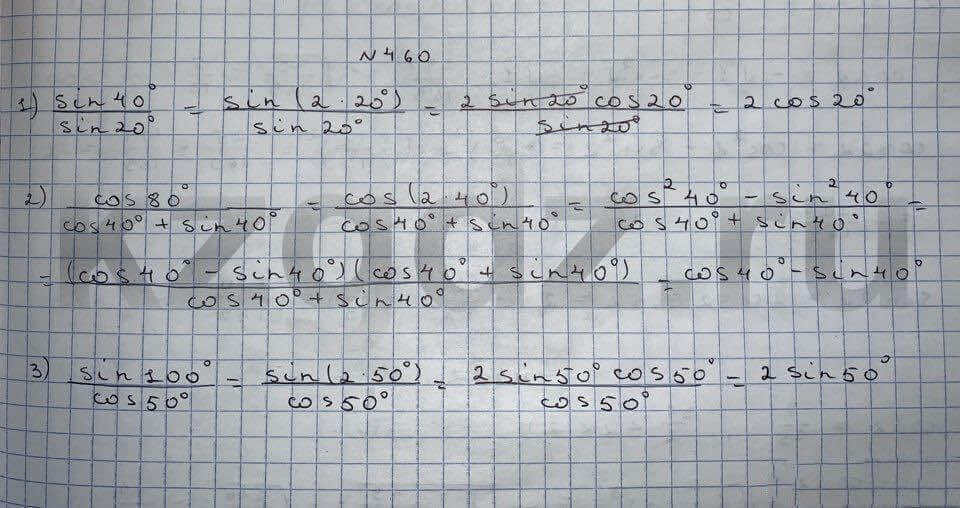 N 460
1) sin 40° / sin 20° = sin (2 · 20°) / sin 20° = 2 sin 20° cos 20° / sin 20° = 2 cos 20°
2) cos 80° / cos 40° + sin 40° = cos (2 · 40°) / cos 40° + sin 40° = cos² 40° - sin² 40° / cos 40° + sin 40° =
= (cos 40° - sin 40°) (cos 40° + sin 40°) / cos 40° + sin 40° = cos 40° - sin 40°
3) sin 100° / cos 50° = sin (2 · 50°) / cos 50° = 2 sin 50° cos 50° / cos 50° = 2 sin 50°
kzgdz.ru